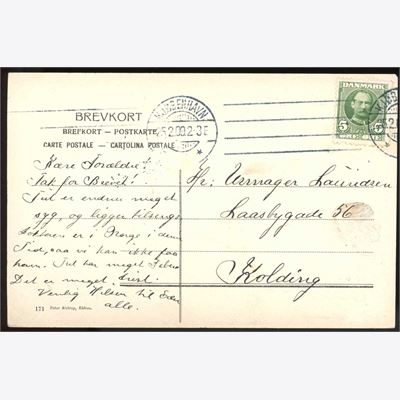 BREVKORT
BREFKORT - POSTKARTE
CARTE POSTALE - CARTOLINA POSTALE
KJØBENHAVN
5.2.09.2-3E
DANMARK
5
Kære Forældre!
Tak for Brevet!
er endnu meget
syg, og ligger tilsengs
er i Norge i den
Tid, saa vi kan ikke faa
ham. har meget Feber
Det er meget trist.
Venlig Hilsen til Eder
alle.
Hr. Urmager
Laasbygade 56
Kolding
171 Peter Alstrup, Eblen.